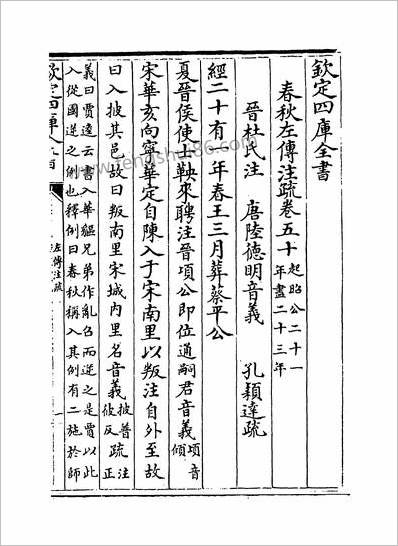 欽定四庫全書
春秋左傳注疏卷五十 起昭公二十一年盡二十三年
晉杜氏注 唐陸德明音義 孔穎達疏
經二十有一年春王三月葬蔡平公
夏晉侯使士鞅來聘注晉頃公即位通嗣君音義 頃音傾
宋華亥向甯華定自陳入于宋南里以叛注自外至故
曰入披其邑故曰叛南里宋城內里名音義 披普彼反 疏 注正
義曰賈逵云書入華貙兄弟作亂召而逆之是賈以此
入從國逆之例也釋例曰春秋稱入其例有二施於師
欽定四庫全書
左傳注疏
www.fengshui86.com